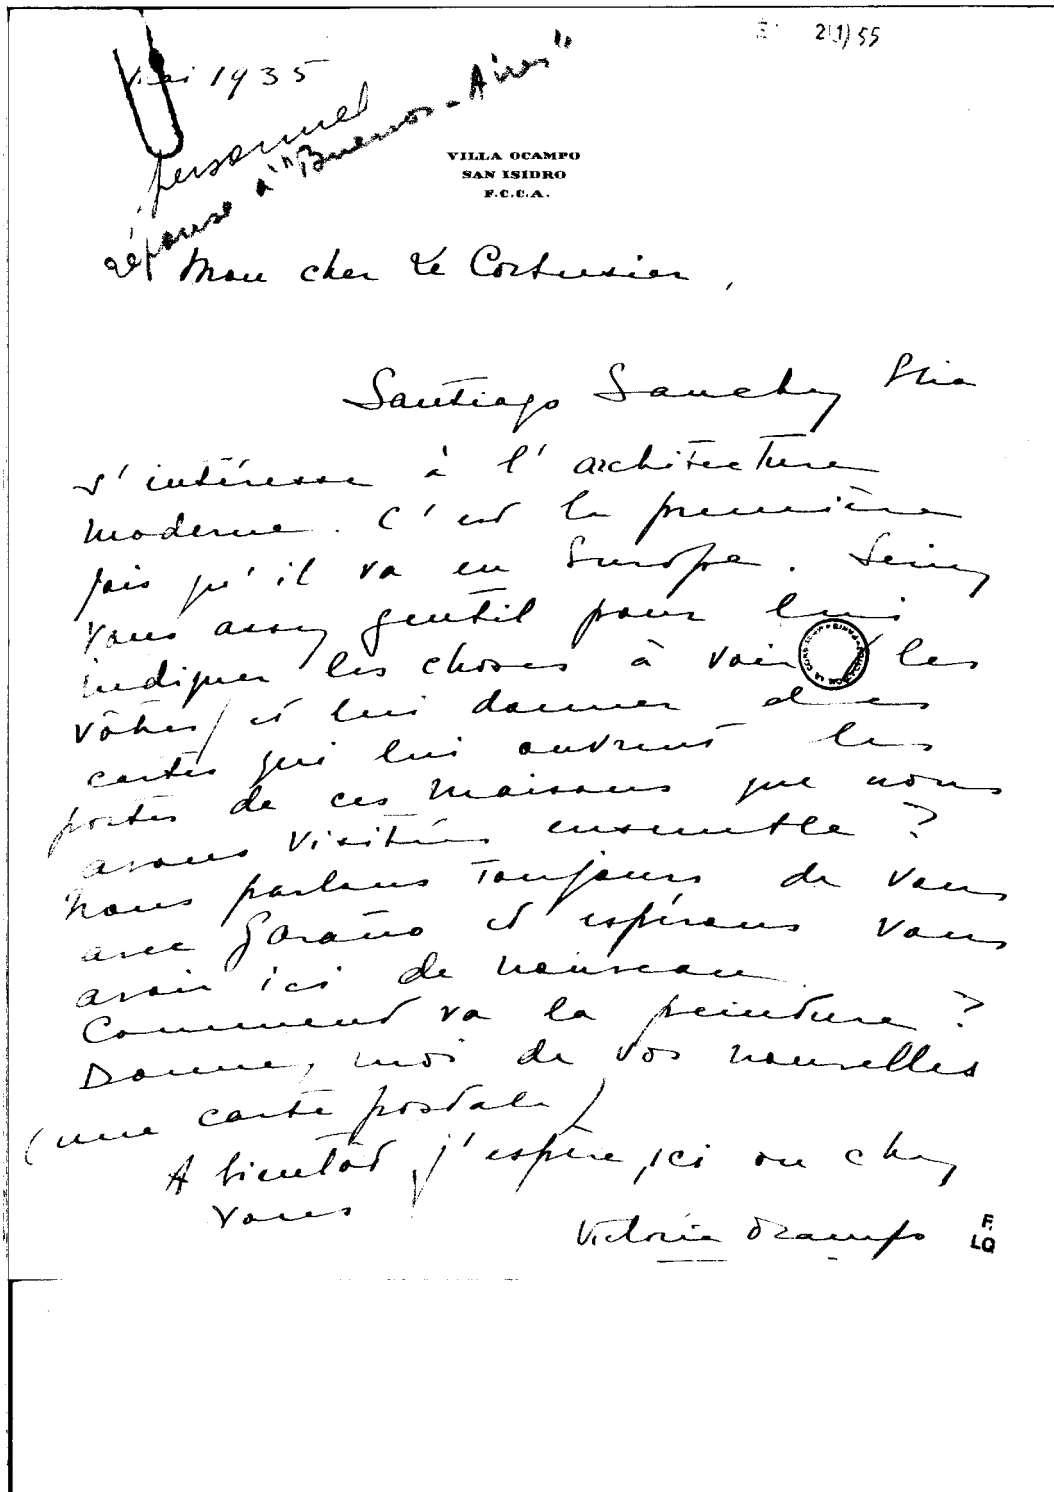 2(1)55
Mai 1935
personnel
réponse à "Buenos-Aires"
VILLA OCAMPO
SAN ISIDRO
F.C.C.A.
Mon cher Le Corbusier,
Santiago Sanchez Elia
s'intéresse à l'architecture
moderne. C'est la première
fois qu'il va en Europe. Seriez
vous assez gentil pour lui
indiquer les choses à voir (les
vôtres) et lui donner des
cartes qui lui ouvrent les
portes de ces maisons que nous
avons visitées ensemble ?
Nous parlons toujours de vous
avec Garaño et espérons vous
avoir ici de nouveau
Comment va la peinture ?
Donnez moi de vos nouvelles
(une carte postale)
A bientôt j'espère, ici ou chez
vous
Victoria Ocampo
F.
LQ